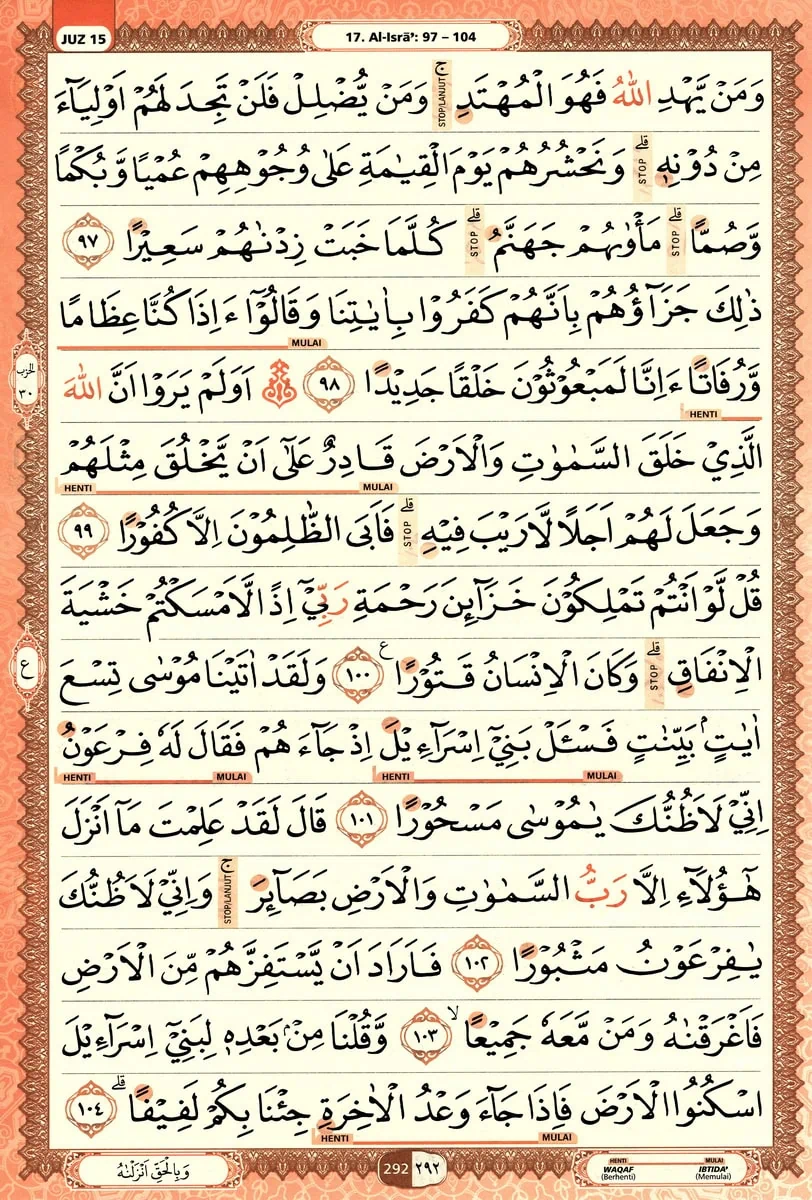 JUZ 15
17. Al-Isrā': 97 – 104
وَمَنْ يَّهْدِ اللّٰهُ فَهُوَ الْمُهْتَدِۚ STOP/LANJUT وَمَنْ يُّضْلِلْ فَلَنْ تَجِدَ لَهُمْ اَوْلِيَاۤءَ
مِنْ دُوْنِهٖۗ STOP وَنَحْشُرُهُمْ يَوْمَ الْقِيٰمَةِ عَلٰى وُجُوْهِهِمْ عُمْيًا وَّبُكْمًا
وَّصُمًّاۗ STOP مَأْوٰىهُمْ جَهَنَّمُۗ STOP كُلَّمَا خَبَتْ زِدْنٰهُمْ سَعِيْرًا ٩٧
ذٰلِكَ جَزَاۤؤُهُمْ بِاَنَّهُمْ كَفَرُوْا بِاٰيٰتِنَا وَقَالُوْٓا ءَاِذَا كُنَّا عِظَامًا
MULAI
وَّرُفَاتًا ءَاِنَّا لَمَبْعُوْثُوْنَ خَلْقًا جَدِيْدًا ٩٨ ۞ اَوَلَمْ يَرَوْا اَنَّ اللّٰهَ
HENTI
الحزب ٣٠
الَّذِيْ خَلَقَ السَّمٰوٰتِ وَالْاَرْضَ قَادِرٌ عَلٰٓى اَنْ يَّخْلُقَ مِثْلَهُمْ
MULAI HENTI
وَجَعَلَ لَهُمْ اَجَلًا لَّا رَيْبَ فِيْهِۗ STOP فَاَبَى الظّٰلِمُوْنَ اِلَّا كُفُوْرًا ٩٩
قُلْ لَّوْ اَنْتُمْ تَمْلِكُوْنَ خَزَاۤىِٕنَ رَحْمَةِ رَبِّيْٓ اِذًا لَّاَمْسَكْتُمْ خَشْيَةَ
الْاِنْفَاقِۗ STOP وَكَانَ الْاِنْسَانُ قَتُوْرًا ࣖ ١٠٠ وَلَقَدْ اٰتَيْنَا مُوْسٰى تِسْعَ
ع
اٰيٰتٍۢ بَيِّنٰتٍ فَسْـَٔلْ بَنِيْٓ اِسْرَاۤءِيْلَ اِذْ جَاۤءَهُمْ فَقَالَ لَهٗ فِرْعَوْنُ
MULAI HENTI MULAI HENTI
اِنِّيْ لَاَظُنُّكَ يٰمُوْسٰى مَسْحُوْرًا ١٠١ قَالَ لَقَدْ عَلِمْتَ مَآ اَنْزَلَ
هٰٓؤُلَاۤءِ اِلَّا رَبُّ السَّمٰوٰتِ وَالْاَرْضِ بَصَاۤىِٕرَۚ STOP/LANJUT وَاِنِّيْ لَاَظُنُّكَ
يٰفِرْعَوْنُ مَثْبُوْرًا ١٠٢ فَاَرَادَ اَنْ يَّسْتَفِزَّهُمْ مِّنَ الْاَرْضِ
فَاَغْرَقْنٰهُ وَمَنْ مَّعَهٗ جَمِيْعًاۙ ١٠٣ وَّقُلْنَا مِنْۢ بَعْدِهٖ لِبَنِيْٓ اِسْرَاۤءِيْلَ
اسْكُنُوا الْاَرْضَ فَاِذَا جَاۤءَ وَعْدُ الْاٰخِرَةِ جِئْنَا بِكُمْ لَفِيْفًاۗ ١٠٤
MULAI HENTI
وَبِالْحَقِّ اَنْزَلْنٰهُ
292 ٢٩٢
HENTI MULAI
WAQAF IBTIDA'
(Berhenti) (Memulai)